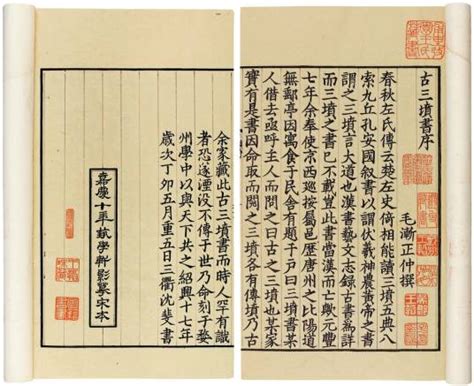 古三墳書序
毛漸正仲撰
春秋左氏傳云楚左史倚相能讀三墳五典八
索九丘孔安國叙書以謂伏羲神農黃帝之書
謂之三墳言大道也漢書藝文志錄古書為詳
而三墳之書已不載豈此書當漢而亡歟元豐
七年余奉使京西巡按屬邑歷唐州之比陽道
無郵亭因寓食于民舍有題于戶曰三墳書某
人借去亟呼主人而問之曰古之三墳也某家
實有是書因命取而閱之三墳各有傳墳乃古
余家藏此古三墳書而時人罕有識
者恐遂湮没不傳于世乃命刻于婺
州學中以與天下共之紹興十七年
歲次丁卯五月重五日三衢沈斐書
嘉慶十年學軒影摹宋本